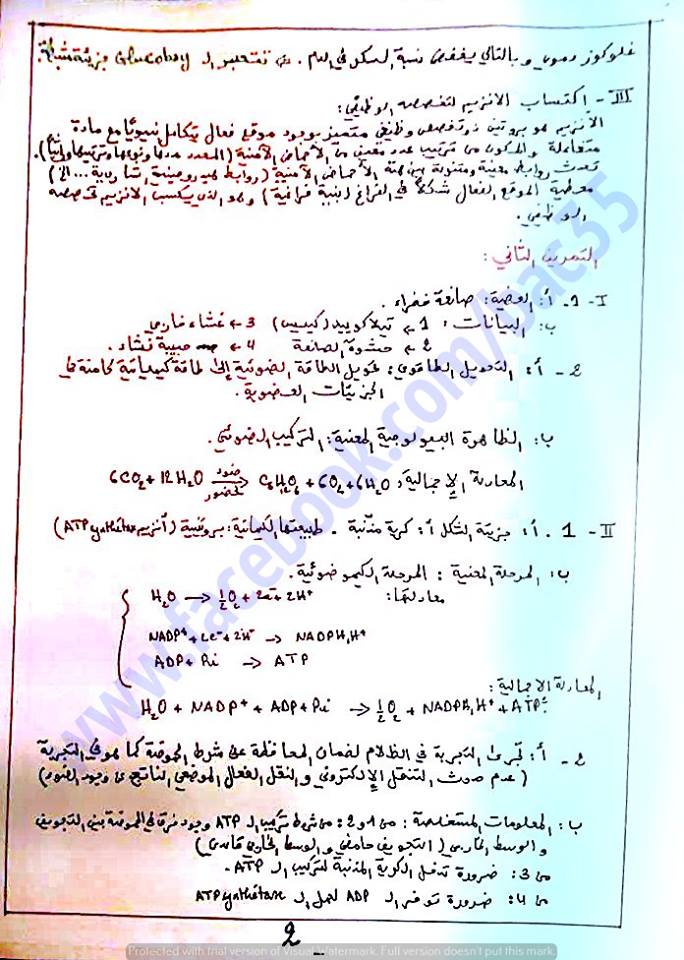 غلوكوز دموي وبالتالي يخفض نسبة السكر في الدم . تعتبر الـ Glucobay جزيئة مثبطة.
III - اكتساب الانزيم لتخصصه الوظيفي:
الأنزيم هو بروتين ذو تخصص وظيفي متميز بوجود موقع فعال يتكامل بنيويا مع مادة
متفاعلة والمتكون من ترتيب عدد معين من الأحماض الأمينية (المحدد عددها ونوعها وترتيبها وراثيا).
تحدث روابط معينة ومتنوعة بين هذه الأحماض الأمينية (روابط هيدروجينية، شاردية ... الخ)
معطية الموقع الفعال شكلا في الفراغ (بنية فراغية) وهو الذي يكسب الانزيم تخصصه
الوظيفي.
التمرين الثاني:
I - 1. أ: العضية: صانعة خضراء .
ب: البيانات: 1 ← تيلاكويد (كييس) 3 ← غشاء خارجي
2 ← حشوة الصانعة 4 ← حبيبة نشاء .
2 - أ: التحويل الطاقوي: تحويل الطاقة الضوئية إلى طاقة كيميائية كامنة في
الجزيئات العضوية .
ب: الظاهرة البيولوجية المعنية: التركيب الضوئي.
المعادلة الإجمالية: 6CO2 + 12H2O → C6H12O6 + 6O2 + 6H2O
ضوء
يخضور
II - 1 . أ: جزيئة الشكل أ: كرية مذنبة . طبيعتها الكيميائية: بروتينية (أنزيم ATP synthétase)
ب: المرحلة المعنية : المرحلة الكيموضوئية.
معادلتها: H2O → ½O2 + 2e- + 2H+
NADP+ + 2e- + 2H+ → NADPH,H+
ADP + Pi → ATP
المعادلة الاجمالية:
H2O + NADP+ + ADP + Pi → ½O2 + NADPH,H+ + ATP
2 - أ: تجرى التجربة في الظلام لضمان المحافظة على شرط الحموضة كما هو في التجربة
(عدم حدوث التنقل الإلكتروني والنقل الفعال الموضعي الناتج عن وجود الضوء)
ب: المعلومات المستخلصة: من 1 و 2: من شروط تركيب الـ ATP وجود فرق في الحموضة بين التجويف
والوسط الخارجي (التجويف حامضي والوسط الخارجي قاعدي)
من 3: ضرورة تدخل الكرية المذنبة لتركيب الـ ATP.
من 4: ضرورة توفر الـ ADP لعمل الـ ATP synthétase
2
www.facebook.com/bac35
Protected with trial version of Visual Watermark. Full version doesn't put this mark.